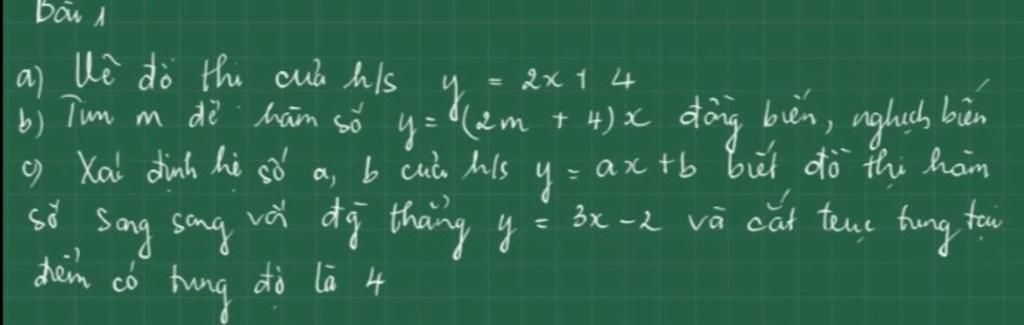 Bài 1
a) Vẽ đồ thị của h/s y = 2x + 4
b) Tìm m để hàm số y = (2m + 4)x đồng biến, nghịch biến
c) Xác định hệ số a, b của h/s y = ax + b biết đồ thị hàm
số song song với đg thẳng y = 3x - 2 và cắt trục tung tại
điểm có tung độ là 4